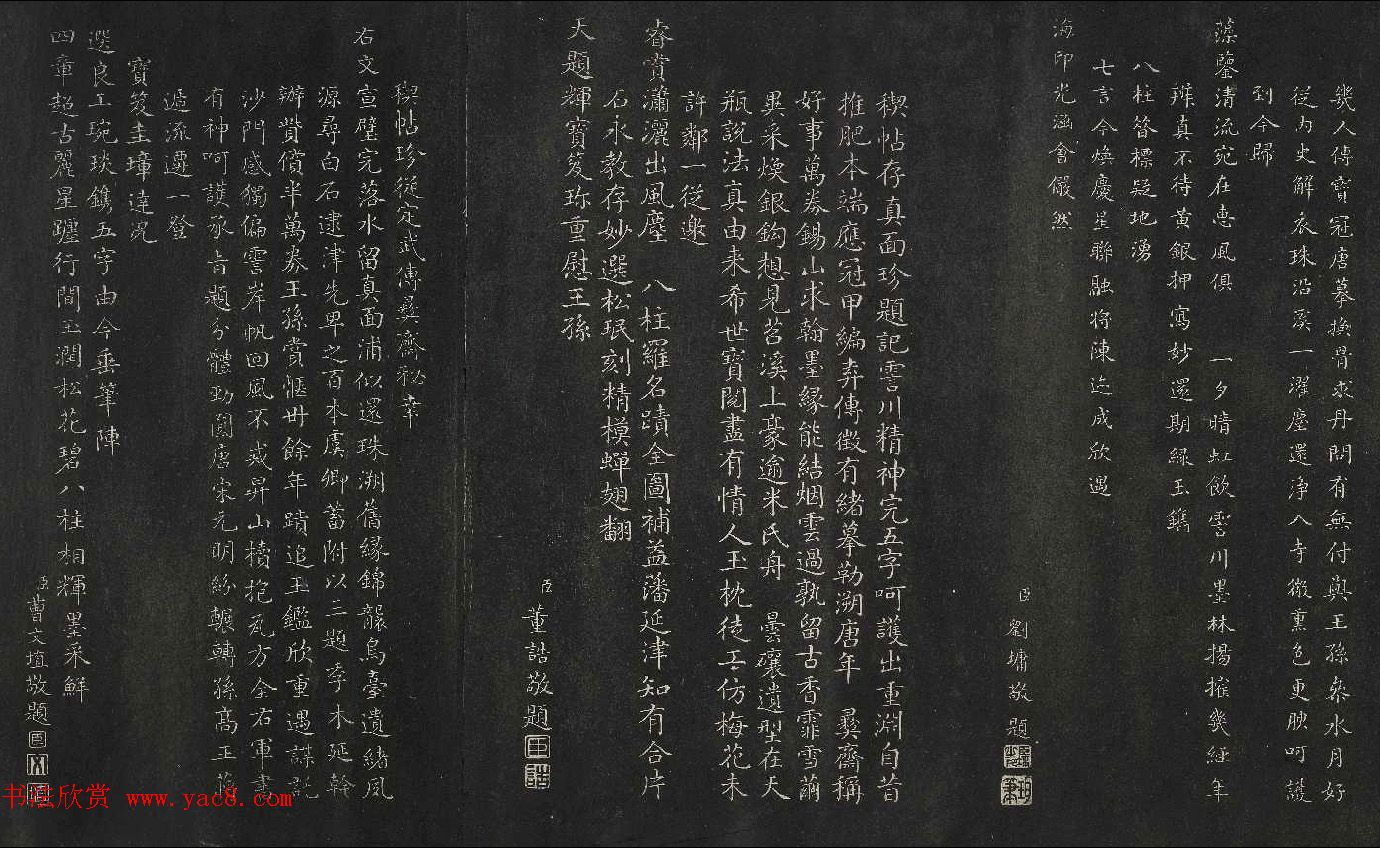 幾人傳寶冠唐摹換骨求丹問有無付與王孫參水月好
從內史解衣珠沿溪一濯塵還淨八寺微熏色更腴呵護
到今歸
藻鑒清流宛在惠風俱 一夕晴虹飲霅川墨林揚搉幾經年
辨真不待黃銀押寫妙還期綠玉鐫
八柱簪標疑地湧
七言今煥慶呈聯融將陳迹成欣遇
海印光涵會儼然
臣劉墉敬題
禊帖存真面珍題記霅川精神完五字呵護出重淵自昔
推肥本端應冠甲編弆傳徵有緒摹勒溯唐年 彞齋稱
好事萬劵錫山求翰墨緣能結烟雲過孰留古香霏雪繭
異采煥銀鉤想見苕溪上豪逾米氏舟 曇礲遺型在天
瓶說法真由来希世寶閱盡有情人玉枕徒工仿梅花未
許鄰一從邀
睿賞瀟灑出風塵 八柱羅名蹟全圖補益藩延津知有合片
石永教存妙選松珉刻精模蟬翅翻
天題輝寶笈珎重慰王孫
臣董誥敬題
禊帖珍從定武傳彞齋秘幸
右文宣璧完落水留真面浦似還珠溯舊緣錦贉烏臺遺緒夙
源尋白石逮津先卑之百本虞卿蓄附以三題李木延斡
辦貲償半萬劵王孫賞愜卅餘年蹟追玉鑑欣重遇謀託
沙門感獨偏霅岸帆回風不戒昇山犢抱瓦方全右軍書
有神呵護承旨題分體勁圓唐宋元明紛輾轉孫高王蔣
遞流遷一登
寶笈圭璋達况
選良工琬琰鐫五字由今垂筆陣
四章超古麗星躔行間玉潤松花碧八柱相輝墨采鮮
臣曹文埴敬題
书法欣赏 www.yac8.com